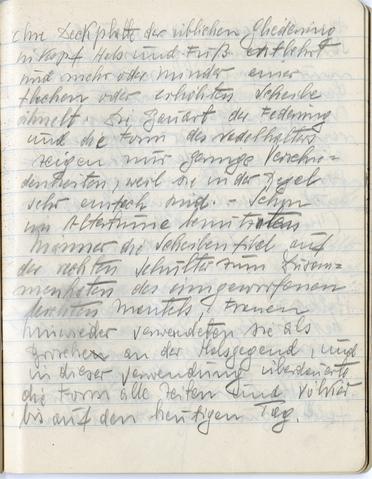 ihre Deckplatte der üblichen Gliederung
in Kopf Hals und Fuß entbehrt
und mehr oder minder einer
flachen oder erhöhten Scheibe
ähnelt. Die Bauart der Federung
und die Form des Nadelhalters
zeigen nur geringe Verschie-
denheiten, weil sie in der Regel
sehr einfach sind. - Schon
im Altertume benutzten
Männer die Scheibenfibel auf
der rechten Schulter zum Zusam-
menhalten des umgeworfenen
Mantels, Frauen
hinwieder verwendeten sie als
Broschen an der Halsgegend, und
in dieser Verwendung überdauerte
die Form alle Zeiten und Völker
bis auf den heutigen Tag.